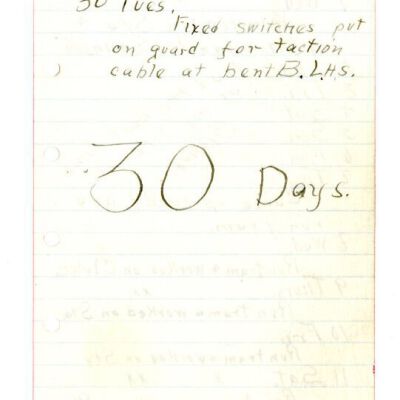 30 Tues.
Fixed switches put
on guard for taction
cable at bent B. L.H.S.
30 Days.